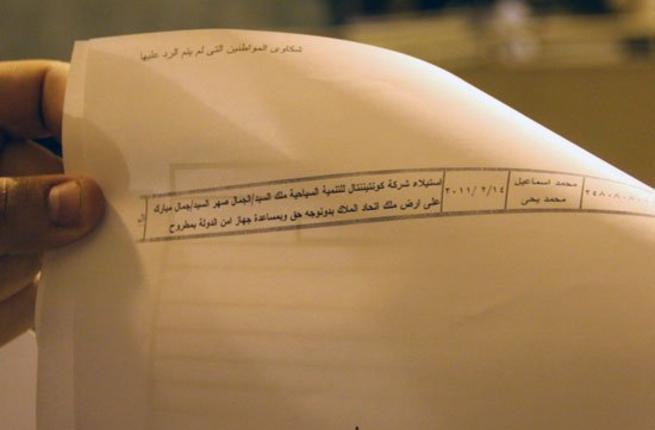 شكاوى المواطنين التى لم يتم الرد عليها
محمد اسماعيل
محمد يحى
٢٠١١/ ٢/١٤
استيلاء شركة كونتيننتال للتنمية السياحية ملك السيد/الجمال صهر السيد/جمال مبارك
على ارض ملك اتحاد الملاك بدونوجه حق وبمساعدة جهاز امن الدولة بمطروح